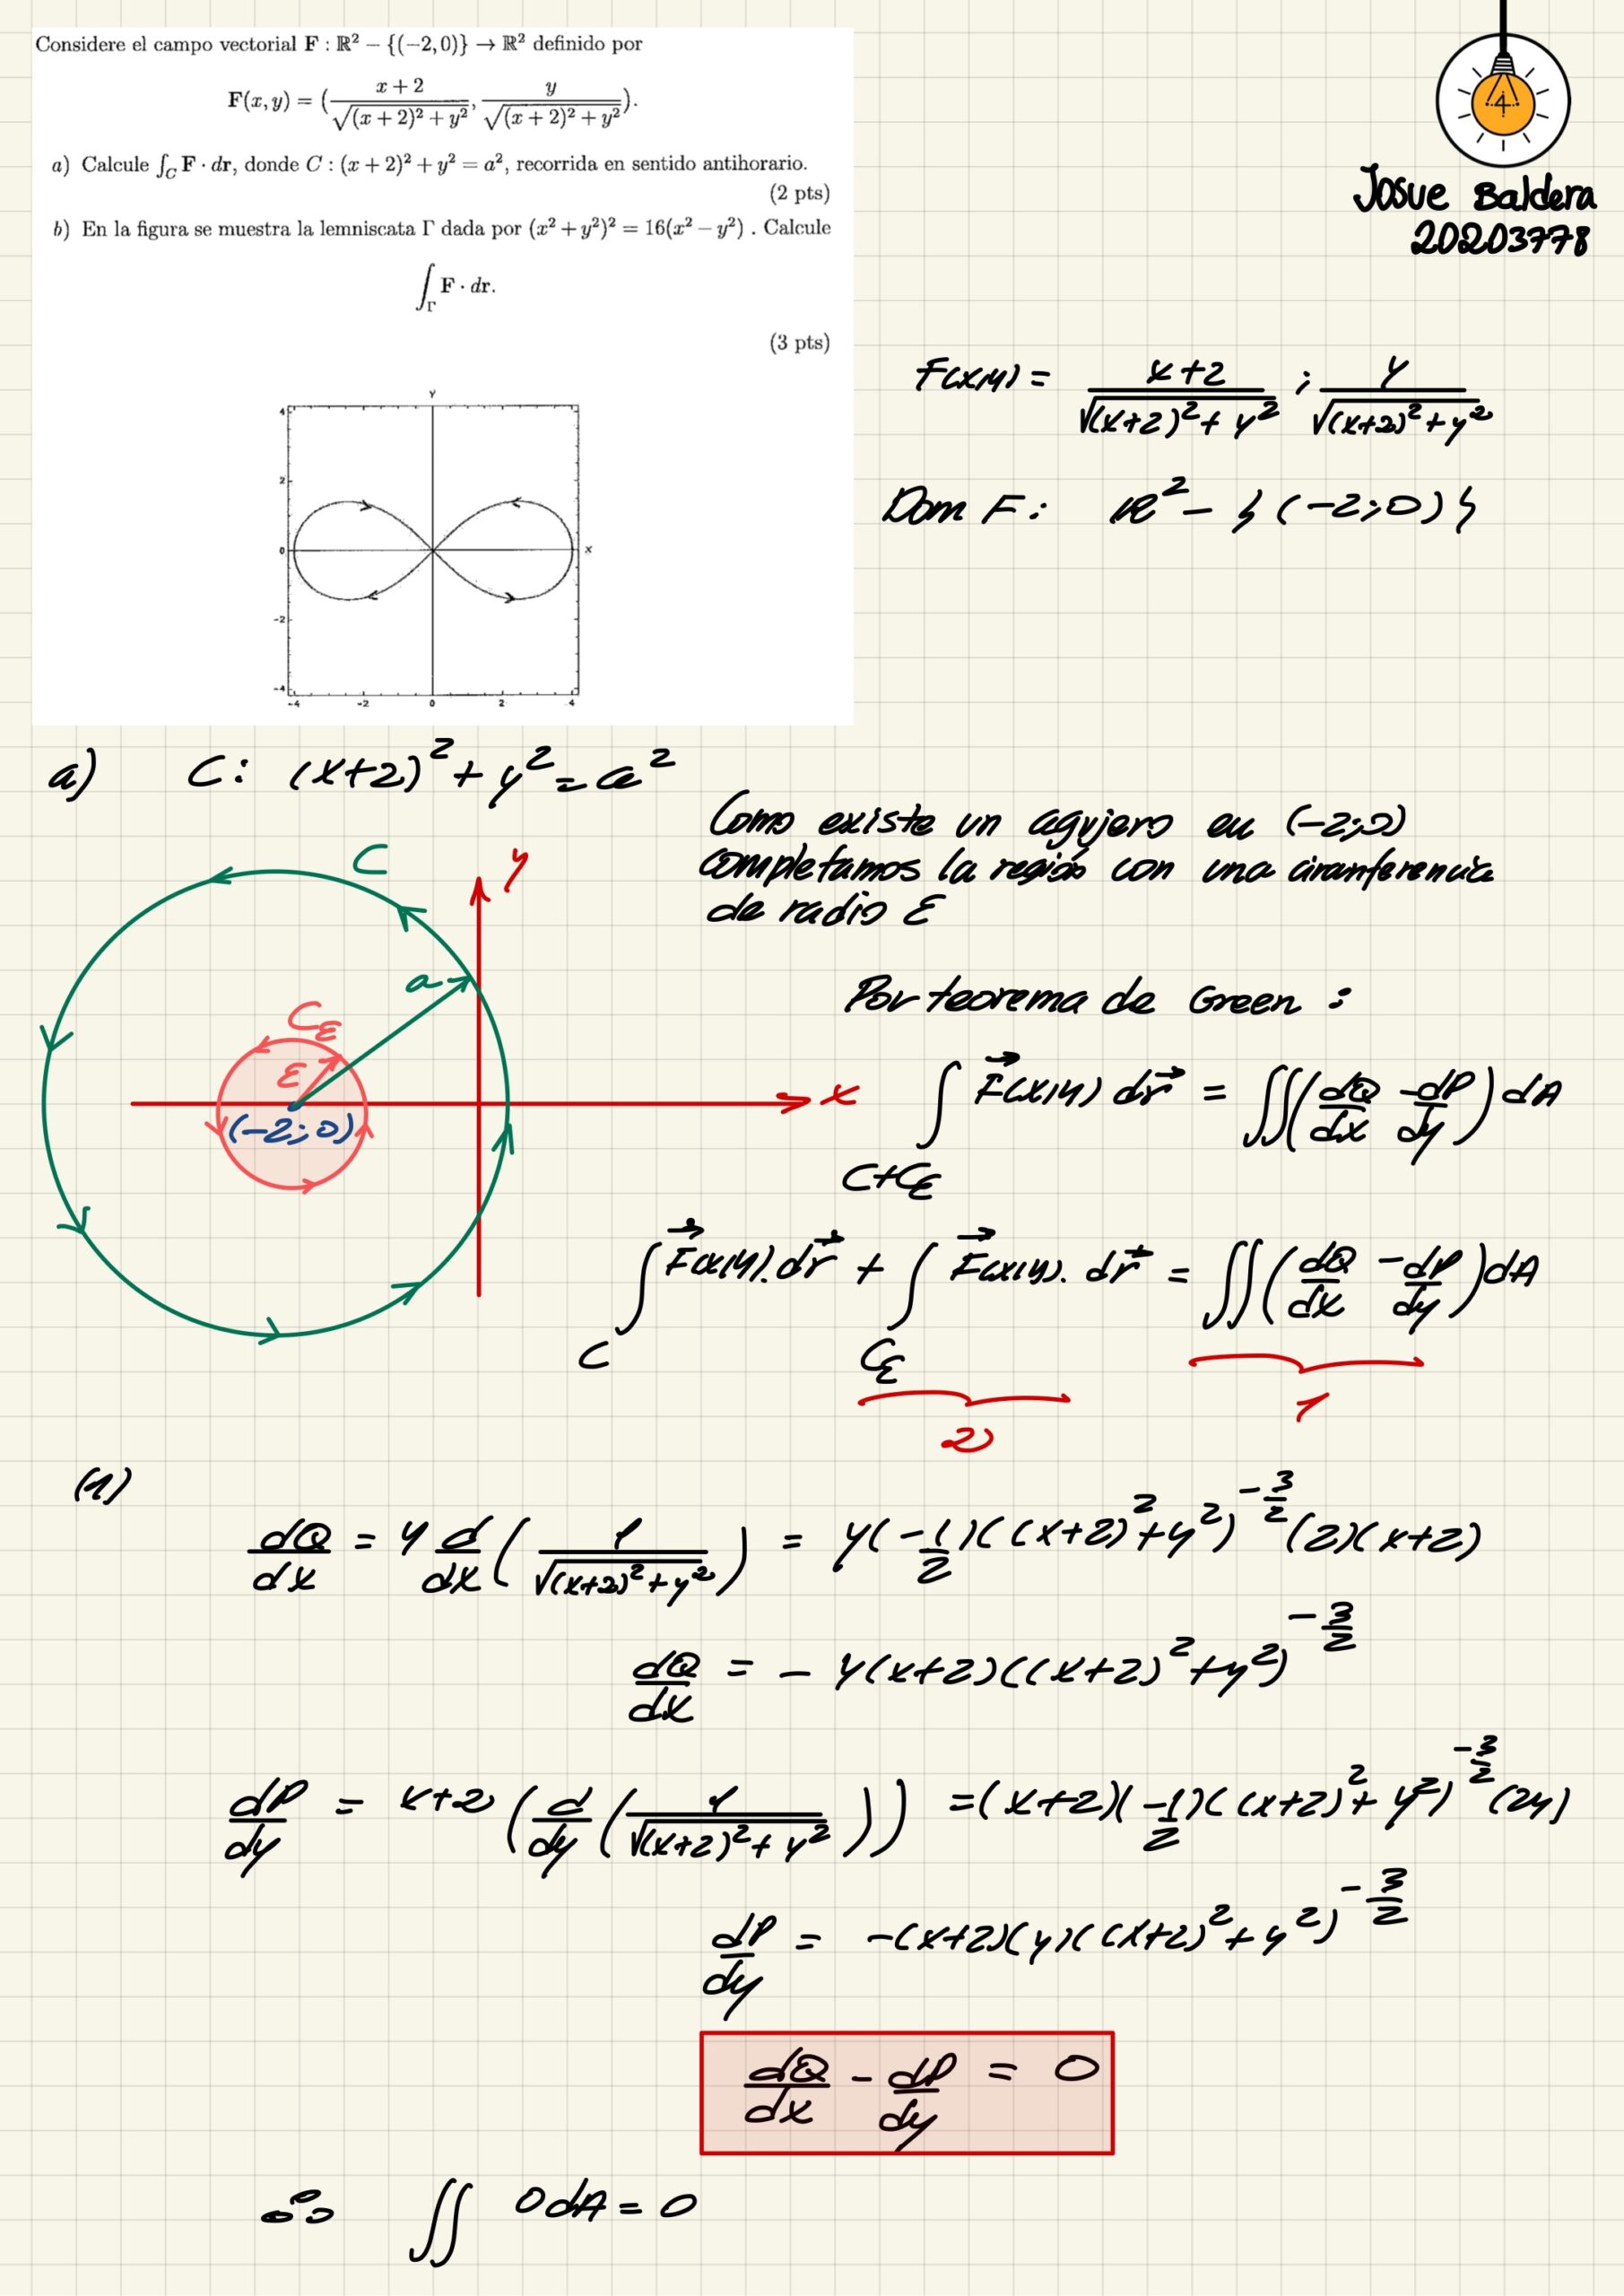 Considere el campo vectorial F : ℝ² − {(−2, 0)} → ℝ² definido por
F(x, y) = ( (x + 2)/√((x + 2)² + y²), y/√((x + 2)² + y²) ).
a) Calcule ∫_C F · dr, donde C : (x + 2)² + y² = a², recorrida en sentido antihorario.
(2 pts)
b) En la figura se muestra la lemniscata Γ dada por (x² + y²)² = 16(x² − y²) . Calcule
∫_Γ F · dr.
(3 pts)
Y
4
2
0
-2
-4
x
-4 -2 0 2 4
4
Josue Baldera
20203778
F(x,y) = (x+2)/√((x+2)² + y²) ; y/√((x+2)² + y²)
Dom F: ℝ² − {(−2;0)}
a) C: (x+2)² + y² = a²
C
y
a
Cε
ε
(−2;0)
x
Como existe un agujero en (−2;0)
completamos la región con una circunferencia
de radio ε
Por teorema de Green :
∫_{C+Cε} F(x,y) dr = ∬(dQ/dx − dP/dy) dA
∫_C F(x,y). dr + ∫_{Cε} F(x,y). dr = ∬(dQ/dx − dP/dy) dA
2 1
(1)
dQ/dx = y d/dx (1/√((x+2)² + y²)) = y(−1/2)((x+2)² + y²)^(−3/2) (2)(x+2)
dQ/dx = − y(x+2)((x+2)² + y²)^(−3/2)
dP/dy = x+2 (d/dy (1/√((x+2)² + y²))) = (x+2)(−1/2)((x+2)² + y²)^(−3/2) (2y)
dP/dy = −(x+2)(y)((x+2)² + y²)^(−3/2)
dQ/dx − dP/dy = 0
∴ ∬ 0 dA = 0